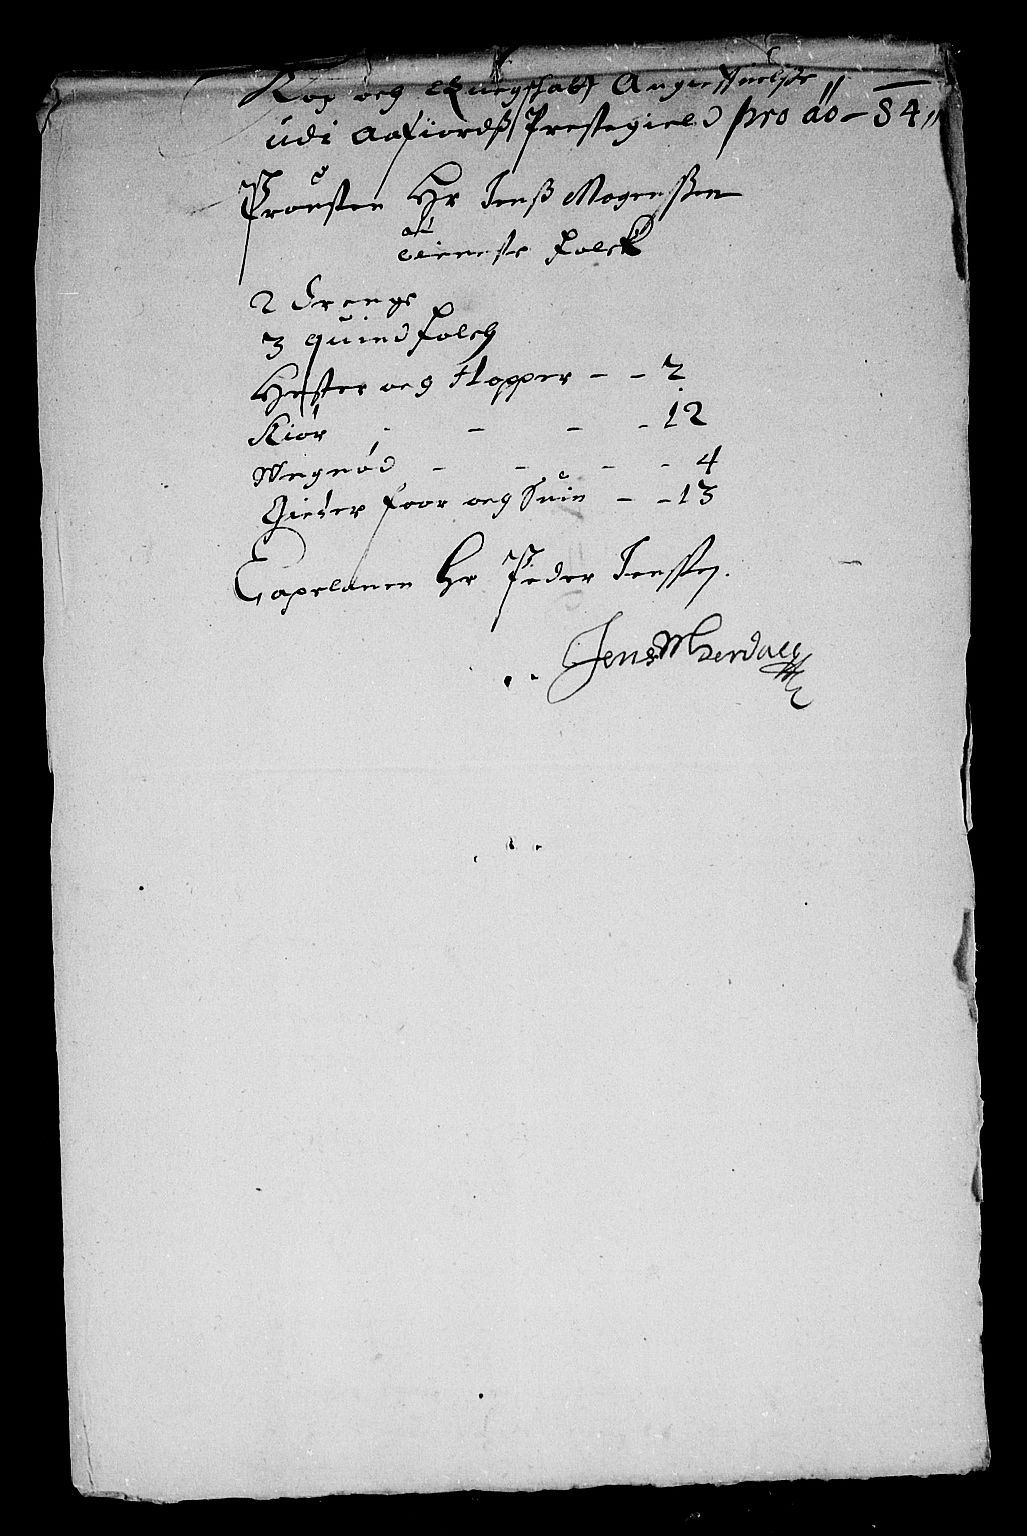 Kop oeg Quegschatt Angiffuelsse
udi Aafiordß Prestegield pro ao - 84 //
Prousten Hr Jenß Mogenßen
tieneste folck
2 drenge
3 quindfolch
Hester oeg Hopper - - 2
Kiør - - - - 12
Ungnød - - - - 4
Gieder foor oeg Suin - - 13
Capelanen Hr Peder Jenssen.
Jens M